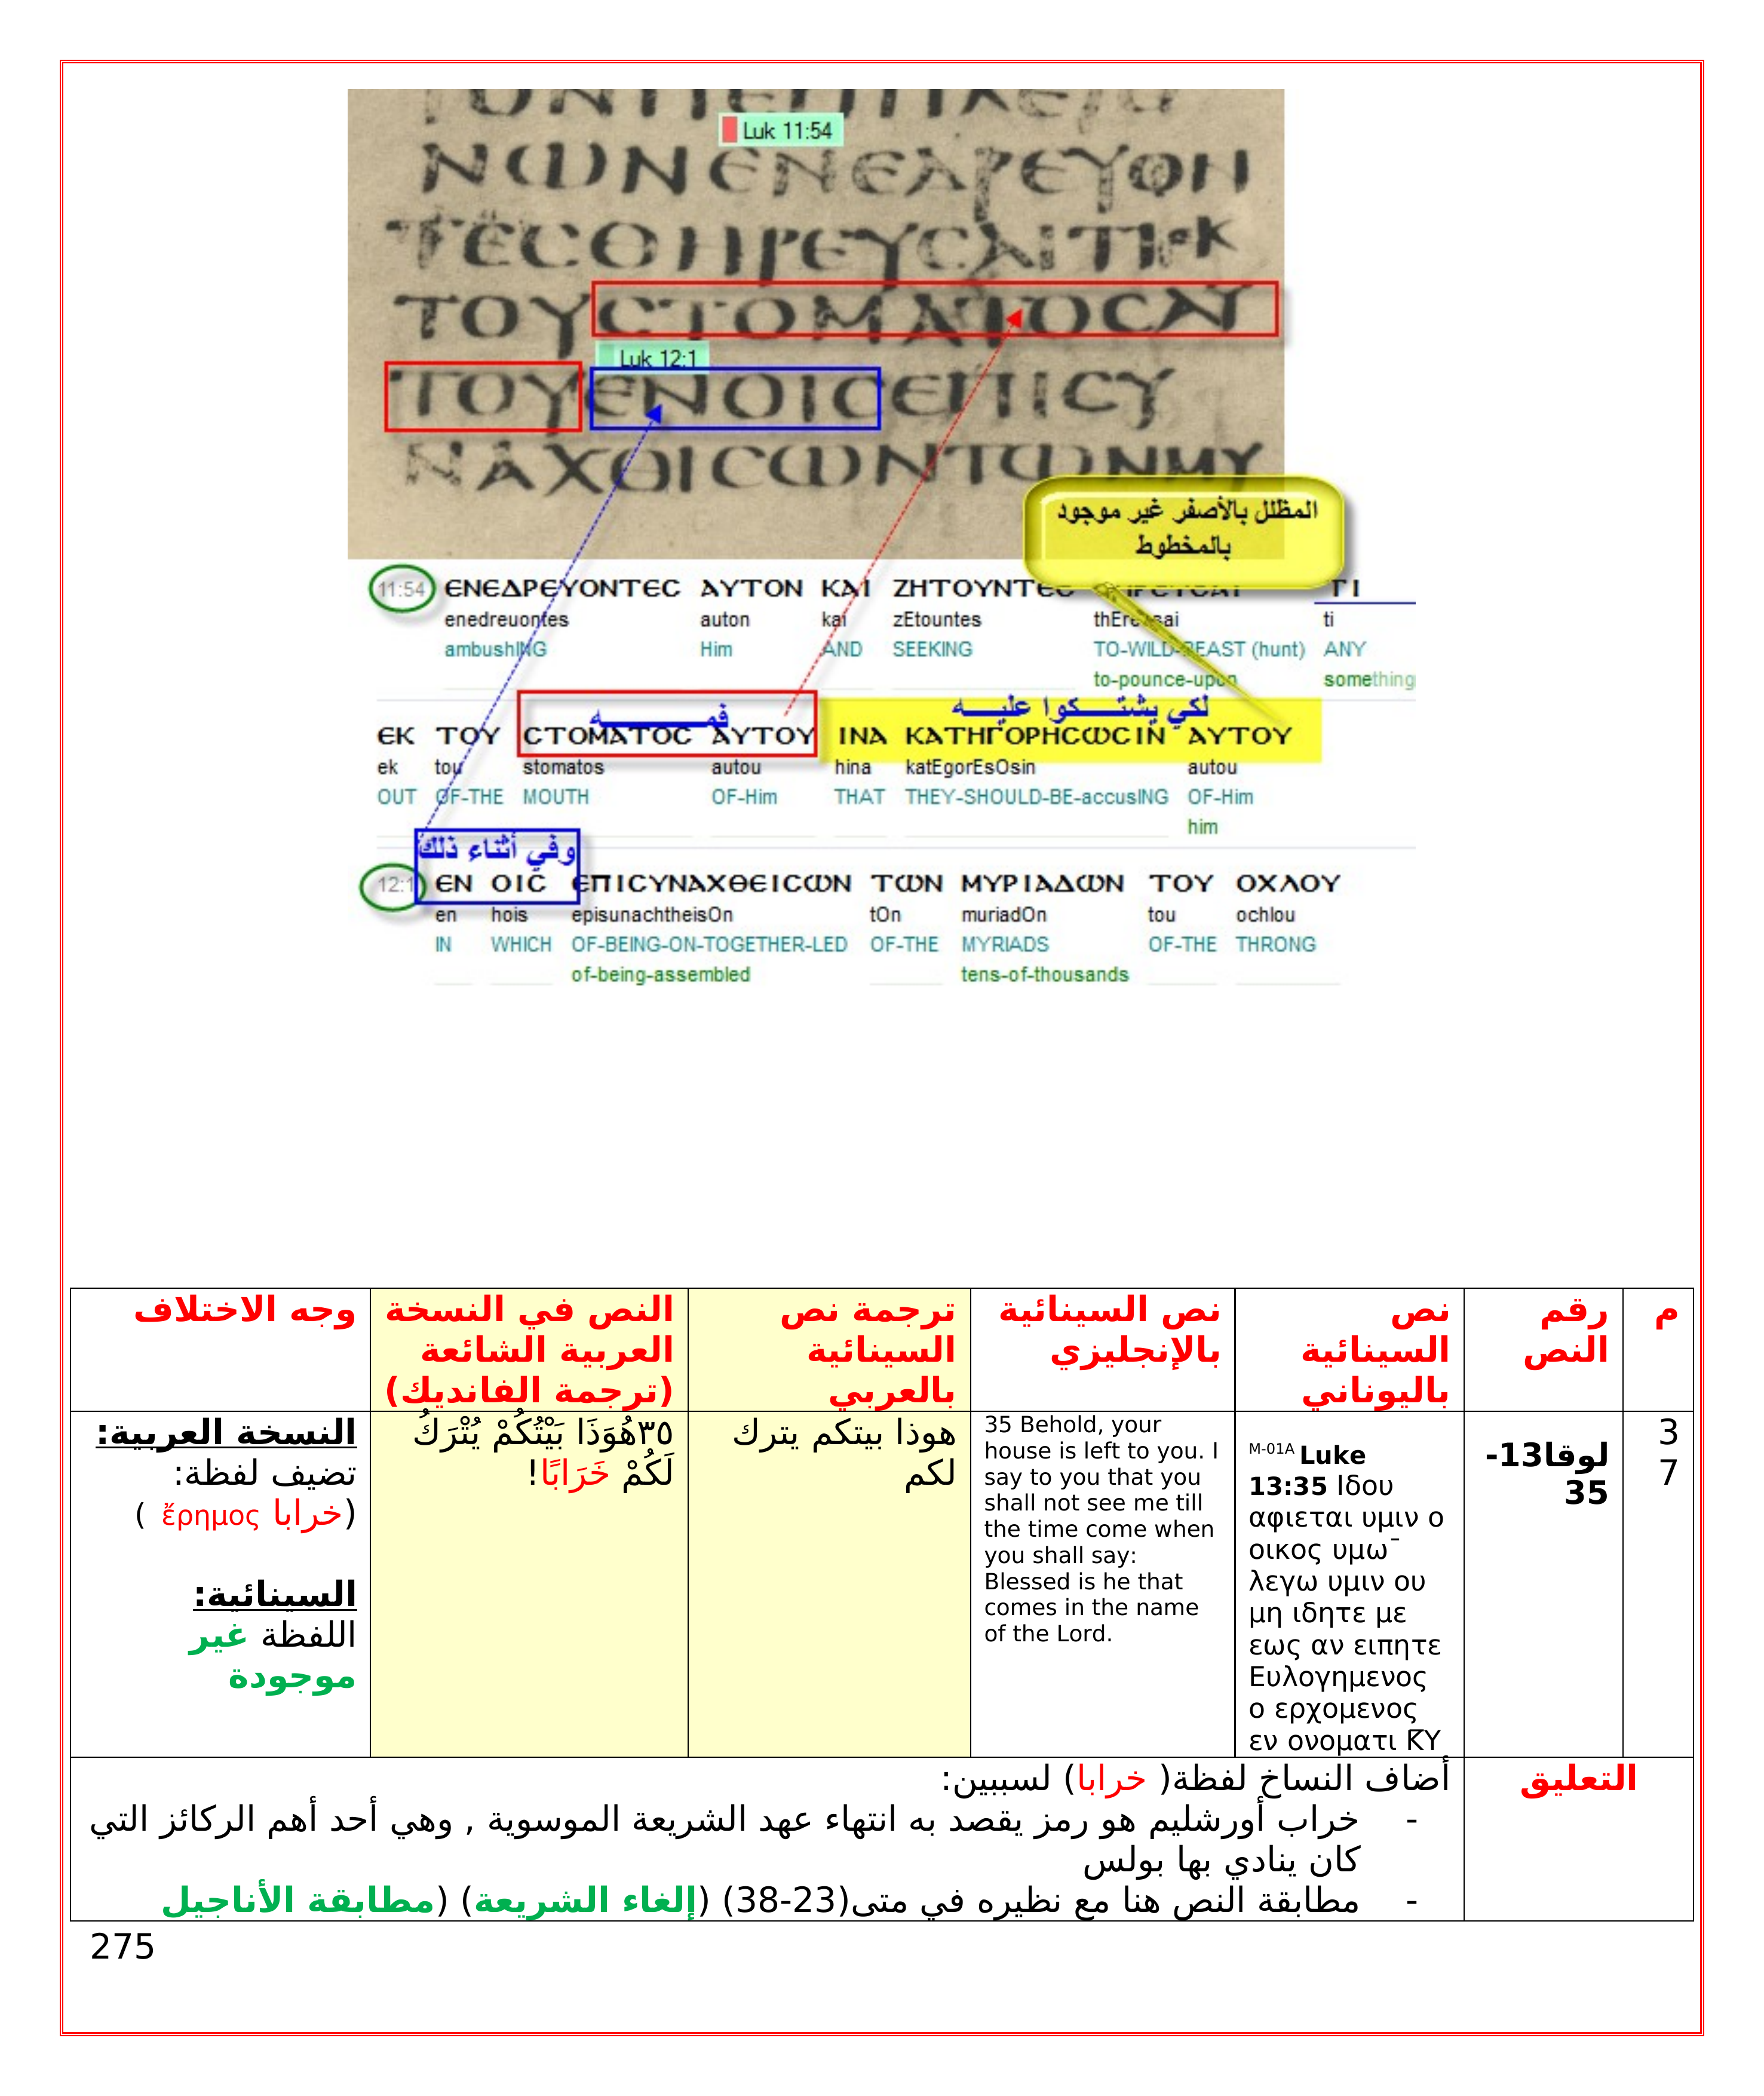 Luk 11:54
ΝѠΝЄΝЄΔΡЄΥΟΗ
ΤЄϹΘΗΡЄΥϹΑΙΤΙЄΚ
ΤΟΥϹΤΟΜΑΤΟϹΑΥ
Luk 12:1
ΤΟΥЄΝΟΙϹЄΠΙϹΥ
ΝΑΧΘΙϹѠΝΤѠΝΜΥ
المظلل بالأصفر غير موجود
بالمخطوط
11:54 ЄΝЄΔΡЄΥΟΝΤЄϹ ΑΥΤΟΝ ΚΑΙ ΖΗΤΟΥΝΤЄϹ ΤΙ
enedreuontes auton kai zEtountes thEreusai ti
ambushING Him AND SEEKING TO-WILD-BEAST (hunt) ANY
to-pounce-upon something
فمــــــه لكي يشتــــكوا عليــــه
ЄΚ ΤΟΥ ϹΤΟΜΑΤΟϹ ΑΥΤΟΥ ΙΝΑ ΚΑΤΗΓΟΡΗϹѠϹΙΝ ΑΥΤΟΥ
ek tou stomatos autou hina katEgorEsOsin autou
OUT OF-THE MOUTH OF-Him THAT THEY-SHOULD-BE-accusING OF-Him
him
وفي أثناء ذلك
12:1 ЄΝ ΟΙϹ ЄΠΙϹΥΝΑΧΘЄΙϹѠΝ ΤѠΝ ΜΥΡΙΑΔѠΝ ΤΟΥ ΟΧΛΟΥ
en hois episunachtheisOn tOn muriadOn tou ochlou
IN WHICH OF-BEING-ON-TOGETHER-LED OF-THE MYRIADS OF-THE THRONG
of-being-assembled tens-of-thousands
م
رقم
النص
نص
السينائية
باليوناني
نص السينائية
بالإنجليزي
ترجمة نص
السينائية
بالعربي
النص في النسخة
العربية الشائعة
(ترجمة الفانديك)
وجه الاختلاف
3
7
لوقا13-
35
M-01A Luke
13:35 Ιδου
αφιεται υμιν ο
οικος υμω¯
λεγω υμιν ου
μη ιδητε με
εως αν ειπητε
Ευλογημενος
ο ερχομενος
εν ονοματι K̅Υ
35 Behold, your
house is left to you. I
say to you that you
shall not see me till
the time come when
you shall say:
Blessed is he that
comes in the name
of the Lord.
هوذا بيتكم يترك
لكم
٣٥هُوَذَا بَيْتُكُمْ يُتْرَكُ
لَكُمْ خَرَابًا!
النسخة العربية:
تضيف لفظة:
(خرابا ἔρημος )
السينائية:
اللفظة غير
موجودة
التعليق
أضاف النساخ لفظة( خرابا) لسببين:
- خراب أورشليم هو رمز يقصد به انتهاء عهد الشريعة الموسوية , وهي أحد أهم الركائز التي
كان ينادي بها بولس
- مطابقة النص هنا مع نظيره في متى(23-38) (إلغاء الشريعة) (مطابقة الأناجيل
275